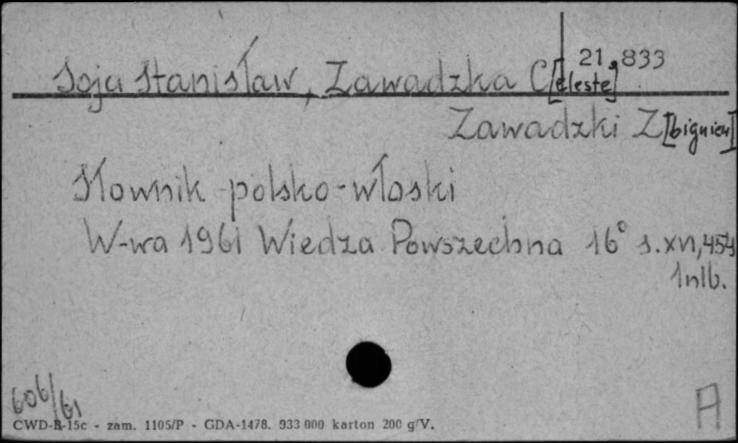 21.833
Soja Stanisław, Zawadzka C[eleste]
Zawadzki Z[bigniew]
Słownik polsko-włoski
W-wa 1961 Wiedza Powszechna 16° s. XVI, 454
1 nlb.
606/61
A
CWD-B-15c - zam. 1105/P - GDA-1478. 933 000 karton 200 g/V.